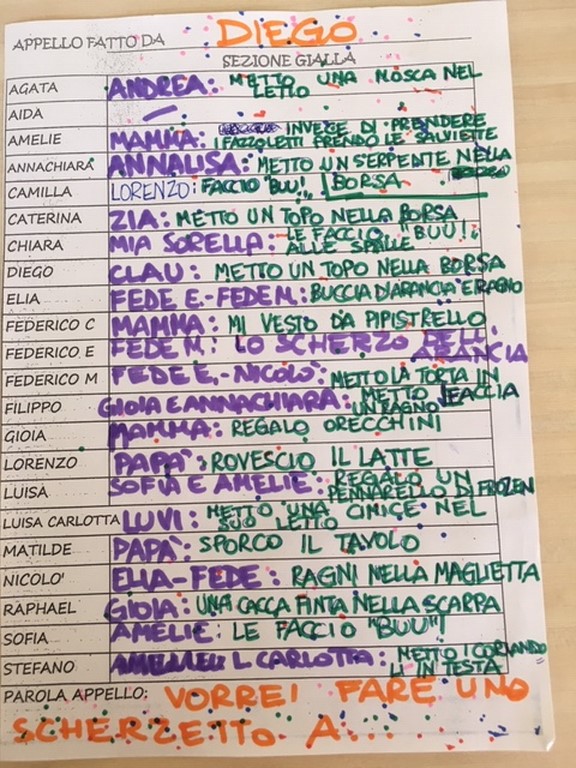 APPELLO FATTO DA DIEGO
SEZIONE GIALLA
AGATA ANDREA: METTO UNA MOSCA NEL
LETTO
AIDA —
AMELIE MAMMA: INVECE DI PRENDERE
I FAZZOLETTI PRENDO LE SALVIETTE
ANNACHIARA ANNALISA: METTO UN SERPENTE NELLA
BORSA
CAMILLA LORENZO: FACCIO "BUU!"
CATERINA ZIA: METTO UN TOPO NELLA BORSA
CHIARA MIA SORELLA: LE FACCIO "BUU!"
ALLE SPALLE
DIEGO CLAU: METTO UN TOPO NELLA BORSA
ELIA FEDE E.-FEDE M.: BUCCIA D'ARANCIA E RAGNO
FEDERICO C MAMMA: MI VESTO DA PIPISTRELLO
FEDERICO E FEDE M: LO SCHERZO DELL'
ARANCIA
FEDERICO M FEDE E.-NICOLO': METTO LA TORTA IN
FACCIA
FILIPPO GIOIA E ANNACHIARA: METTO
UN RAGNO
GIOIA MAMMA: REGALO ORECCHINI
LORENZO PAPA': ROVESCIO IL LATTE
LUISA SOFIA E AMELIE: REGALO UN
PENNARELLO DI FROZEN
LUISA CARLOTTA LUVI: METTO UNA CIMICE NEL
SUO LETTO
MATILDE PAPA': SPORCO IL TAVOLO
NICOLO' ELIA-FEDE: RAGNI NELLA MAGLIETTA
RAPHAEL GIOIA: UNA CACCA FINTA NELLA SCARPA
SOFIA AMELIE: LE FACCIO "BUU"!
STEFANO L CARLOTTA: METTO I CORIANDO
LI IN TESTA
PAROLA APPELLO: VORREI FARE UNO
SCHERZETTO A...